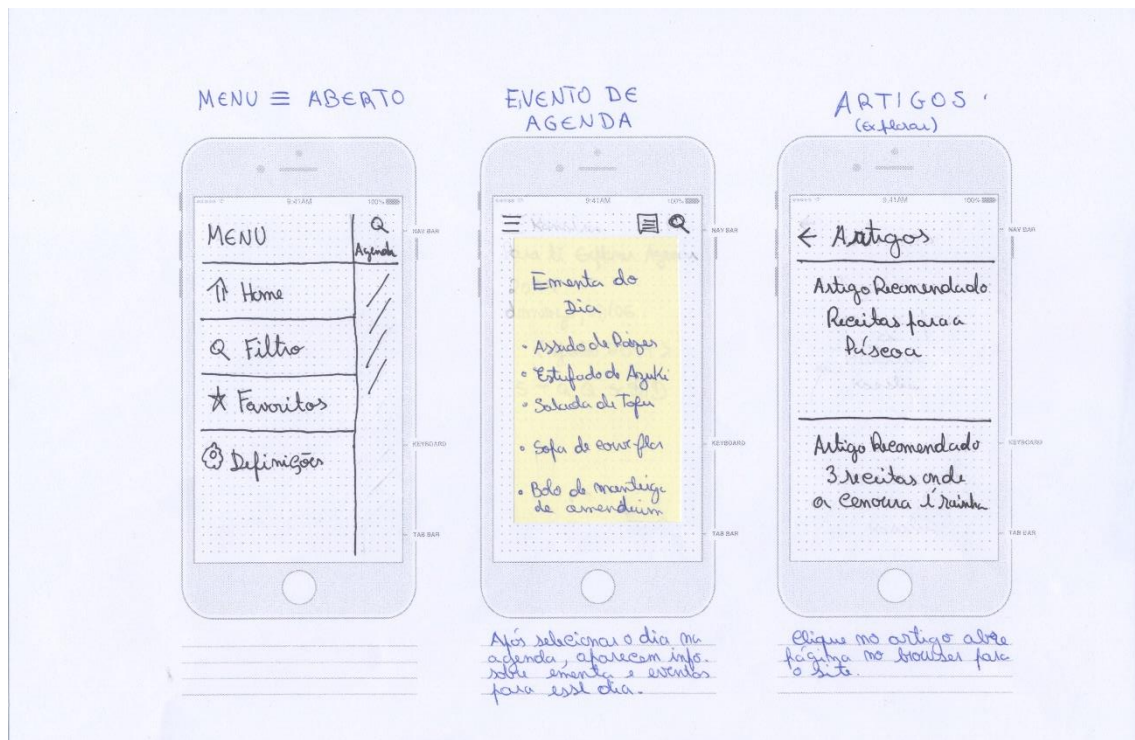 MENU ≡ ABERTO
9:41AM
100%
MENU
Agenda
Home
Filtro
Favoritos
Definições
NAV BAR
KEYBOARD
TAB BAR
EVENTO DE
AGENDA
9:41AM
100%
Ementa do
Dia
• Assado de
• Estufado de Azuki
• Salada de Tofu
• Sopa de couve flor
• Bolo de manteiga
de amendoim
NAV BAR
KEYBOARD
TAB BAR
Após selecionar o dia na
agenda, aparecem info.
sobre ementa e eventos
para esse dia.
ARTIGOS
(explorar)
9:41AM
100%
← Artigos
Artigo Recomendado
Receitas para a
Páscoa
Artigo Recomendado
3 receitas onde
a Cenoura é rainha
NAV BAR
KEYBOARD
TAB BAR
Clique no artigo abre
página no browser para
o site.